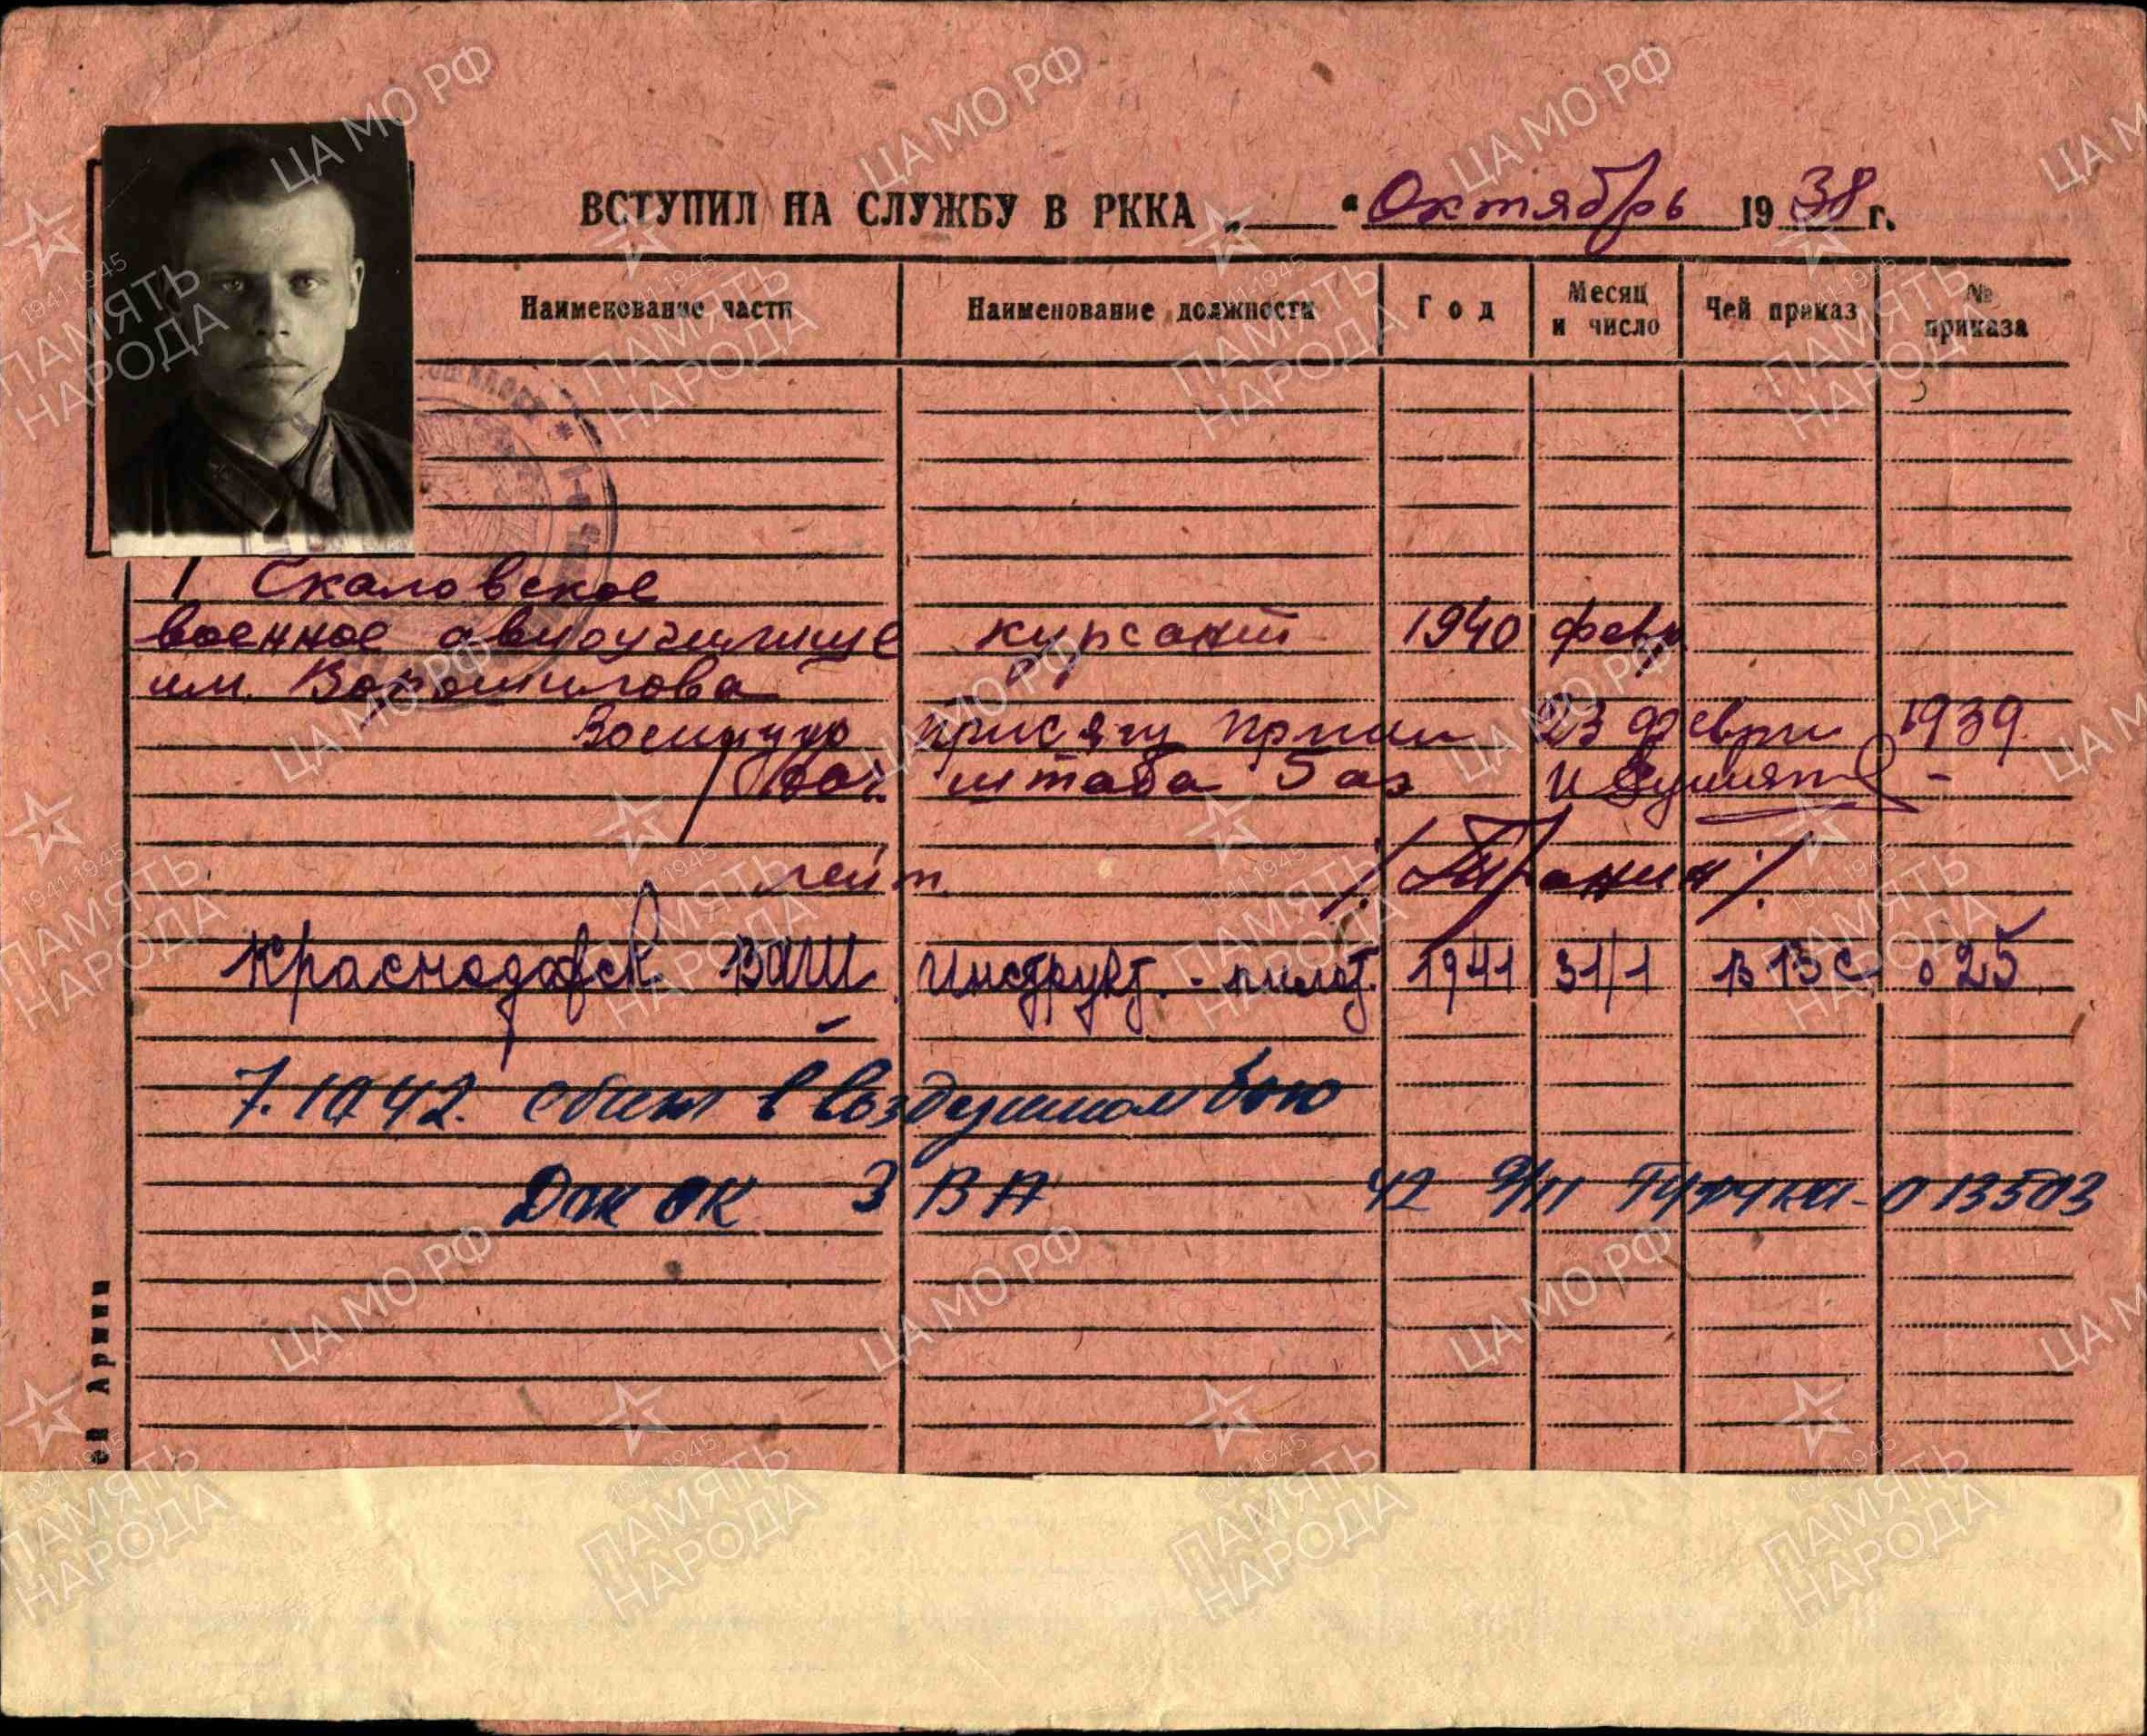 ВСТУПИЛ НА СЛУЖБУ В РККА „ “ Октябрь 1938 г.
Наименование части Наименование должности Год Месяц и число Чей приказ № приказа
Скаловское
военное авиоучилище курсант 1940 февр
им. Ворошилова
Военную присягу принял 23 феврал 1939
Нач. штаба 5 аэ
лейт
Краснодарск. ВАШ инструкт.-пилот. 1941 31/1 025
7.10.42. сбит в воздушном бою
3 ВА 42 9/11 013503
ей Армии
ЦА МО РФ
1941-1945
ПАМЯТЬ
НАРОДА